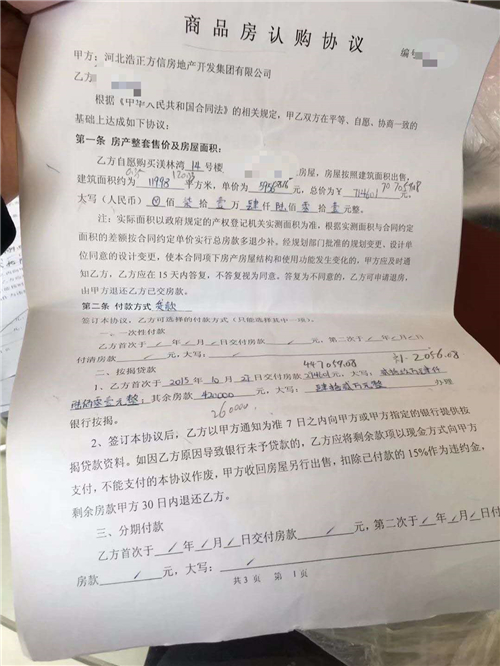 商品房认购协议
编号
甲方：河北浩正方信房地产开发集团有限公司
乙方
根据《中华人民共和国合同法》的相关规定，甲乙双方在平等、自愿、协商一致的
基础上达成如下协议：
第一条 房产整套售价及房屋面积：
乙方自愿购买渼林湾 14 号楼 房屋，房屋按照建筑面积出售；
建筑面积约为 119.98 平方米，单价为 元，总价为￥ 714601 707059.08
大写（人民币） ⊗ 佰 柒 拾 壹 万 肆 仟 陆 佰 零 拾 壹 元整。
注：实际面积以政府规定的产权登记机关实测面积为准，根据实测面积与合同约定
面积的差额按合同约定单价实行总房款多退少补。经规划部门批准的规划变更、设计单
位同意的设计变更，使本合同项下房产房屋结构和使用功能发生变化的，甲方应及时通
知乙方，乙方应在 15 天内答复，不答复视为同意。答复为不同意的，乙方可申请退房，
由甲方退还乙方已交房款。
第二条 付款方式 贷款
签订本协议，乙方可选择的付款方式（只能选择其中一项）。
一、一次性付款
乙方首次于 / 年 / 月 / 日交付房款 / 元，第二次于 / 年 / 月 / 日
付清房款 / 元，大写：
二、按揭贷款 447059.08 2056.08
1、乙方首次于 2015 年 10 月 27 日交付房款 元，大写：
陆佰零壹元整；其余房款 420000 元，大写： 肆拾贰万元整 办理
银行按揭。 260000
2、签订本协议后，乙方以甲方通知为准 7 日之内向甲方或甲方指定的银行提供按
揭贷款资料。如因乙方原因导致银行未予贷款的，乙方应将剩余款项以现金方式向甲方
支付，不能支付的本协议作废，甲方收回房屋另行出售，扣除已付款的 15%作为违约金，
剩余房款甲方 30 日内退还乙方。
三、分期付款
乙方首次于 / 年 / 月 / 日交付房款 / 元，第二次于 / 年 / 月 / 日
房款 / 元，大写： /
共 3 页 第 1 页